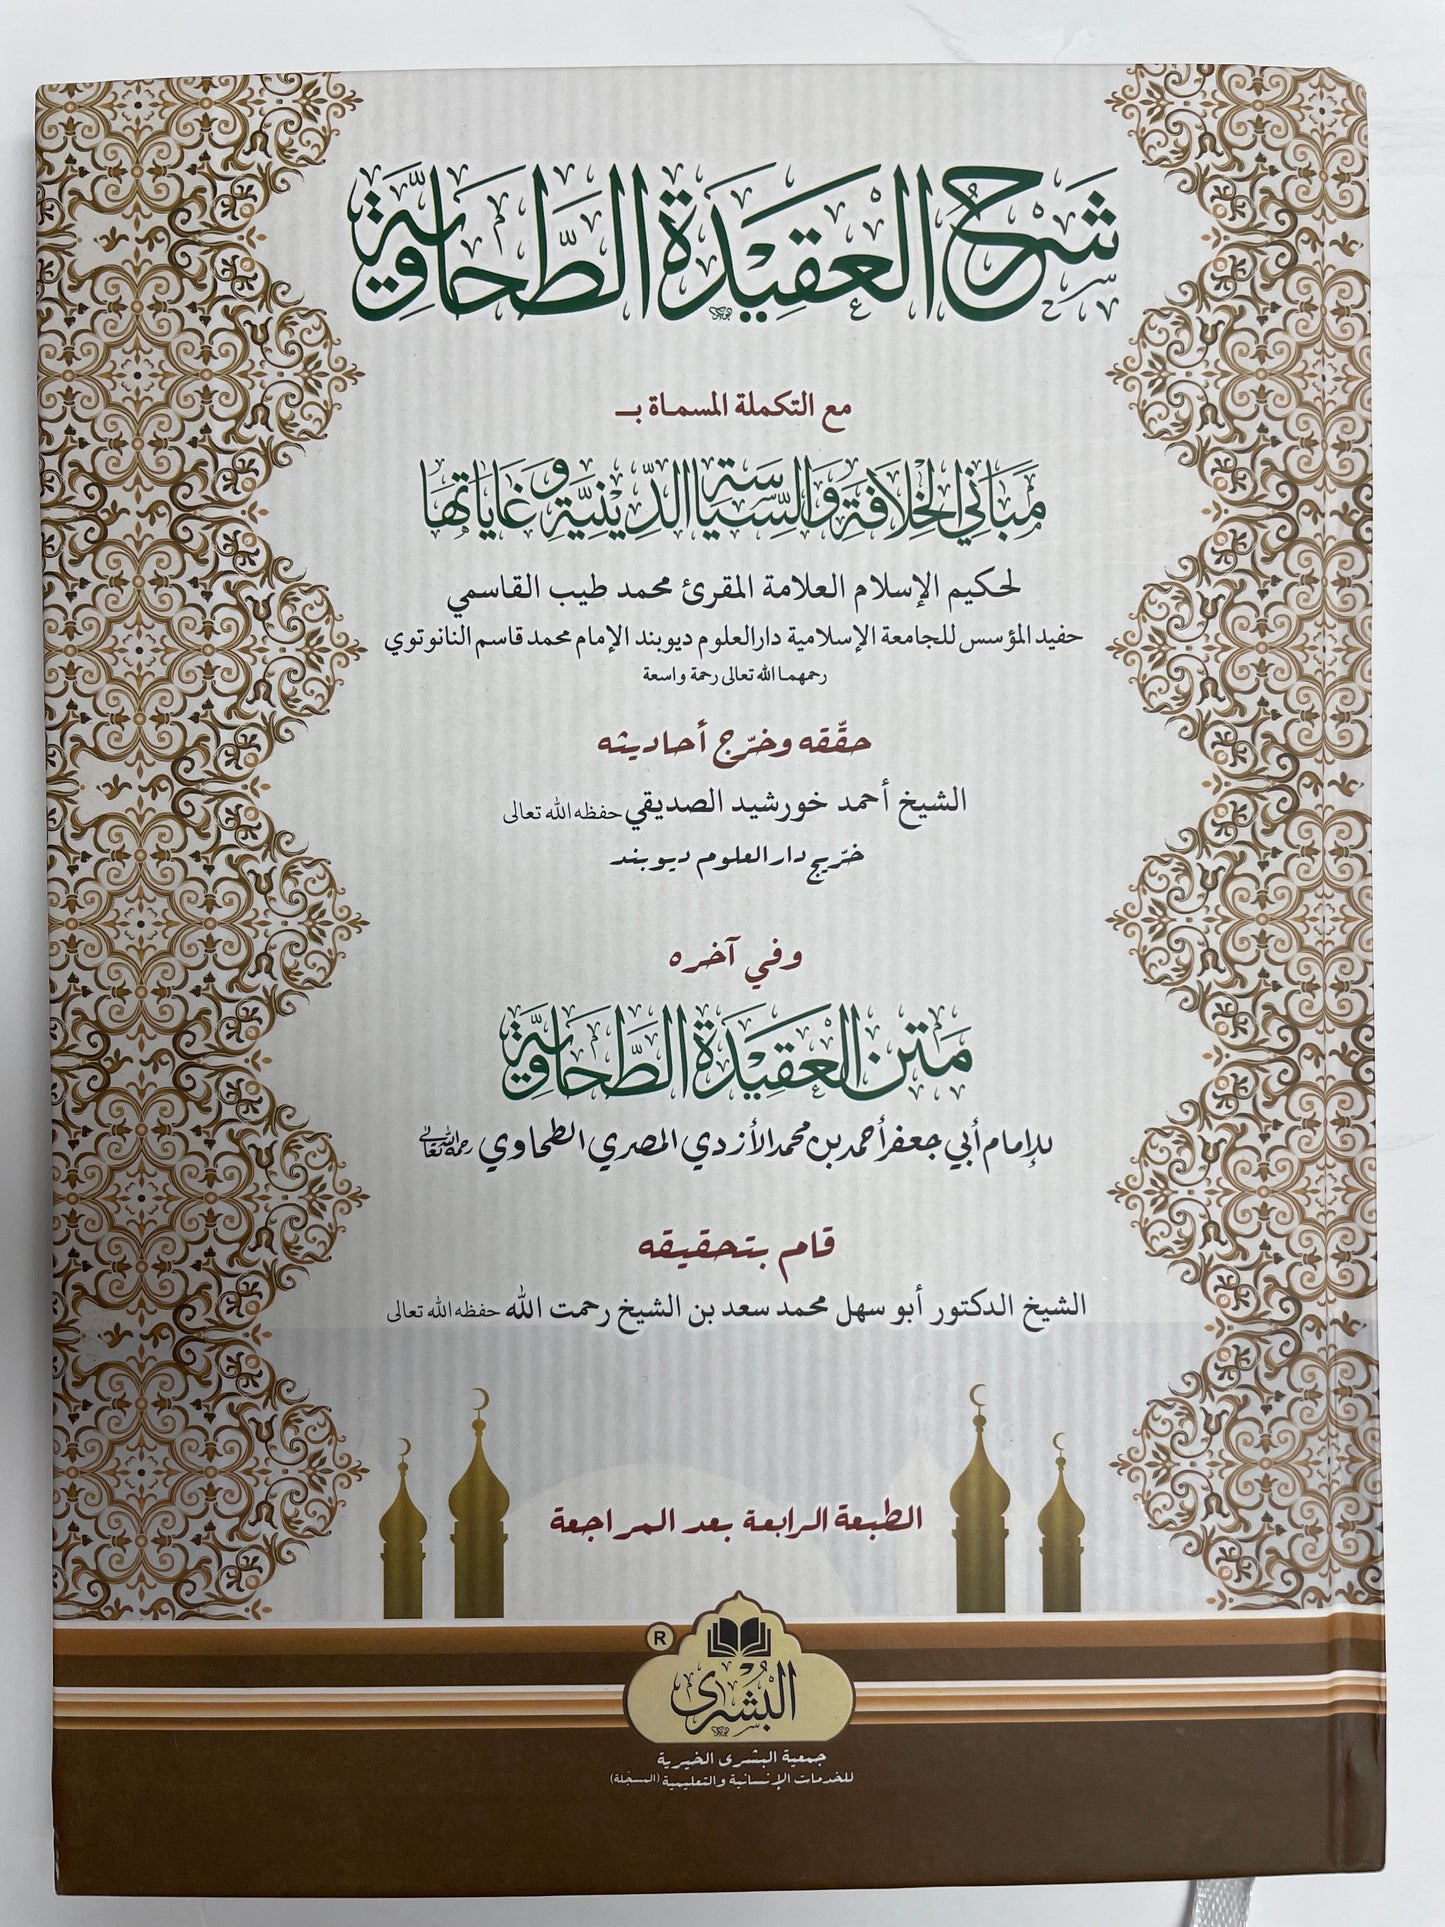 شرح العقيدة الطحاوية
مع التكملة المسماة بـ
مَبَاني الخِلَافَةِ وَالسِّيَاسَةِ الدِّيْنِيَّةِ وَغَايَاتهَا
لحكيم الإسلام العلامة المقرئ محمد طيب القاسمي
حفيد المؤسس للجامعة الإسلامية دارالعلوم ديوبند الإمام محمد قاسم النانوتوي
رحمهما الله تعالى رحمة واسعة
حقّقه وخرّج أحاديثه
الشيخ أحمد خورشيد الصديقي حفظه الله تعالى
خرّيج دار العلوم ديوبند
وفي آخره
مَتن العَقِيْدَة الطَّحَاوِيَّة
للإمام أبي جعفر أحمد بن محمد الأزدي المصري الطحاوي رحمه الله تعالى
قام بتحقيقه
الشيخ الدكتور أبو سهل محمد سعد بن الشيخ رحمت الله حفظه الله تعالى
الطبعة الرابعة بعد المراجعة
R
البُشرى
جمعية البشرى الخيرية
للخدمات الإنسانية والتعليمية (المسجلة)